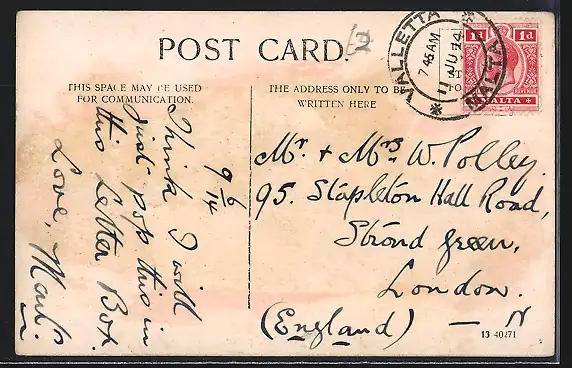 POST CARD.
THIS SPACE MAY BE USED
FOR COMMUNICATION.
THE ADDRESS ONLY TO BE
WRITTEN HERE
VALLETTA
MALTA
7 45 AM
11 JU 14
1d 1d
REVENUE
MALTA
9/6/14
Think I will
just pop this in
this Letter Box.
Love,
Mr. + Mrs W. Polley.
95. Stapleton Hall Road,
Strond Green,
London.
(England) — N
13-40271